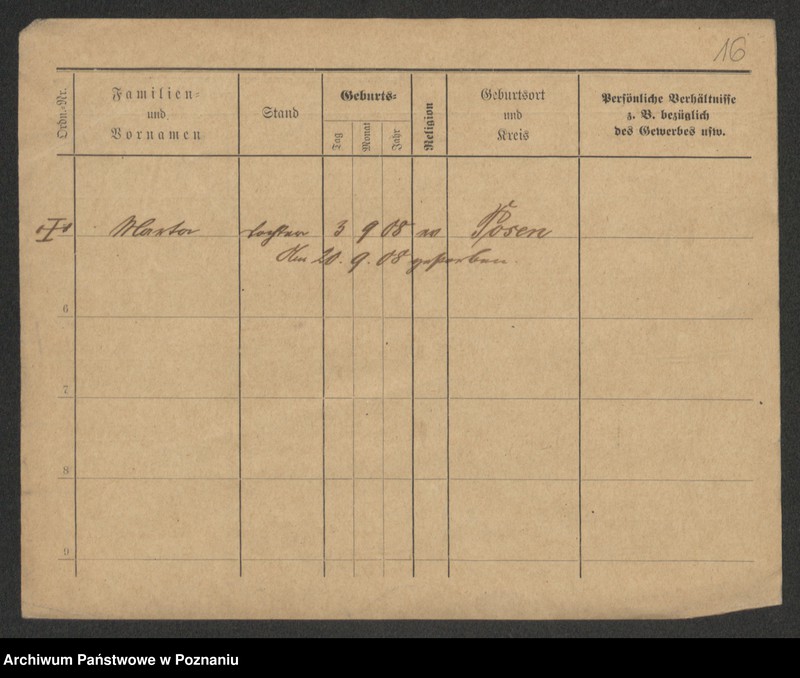 16
Ordn.-Nr.
Familien-
und
Vornamen
Stand
Geburts-
Tag
Monat
Jahr
Religion
Geburtsort
und
Kreis
Persönliche Verhältnisse
z. B. bezüglich
des Gewerbes usw.
Marta Tochter 3 9 08 Posen
Am 20. 9. 08 gestorben.
6
7
8
9
Archiwum Państwowe w Poznaniu